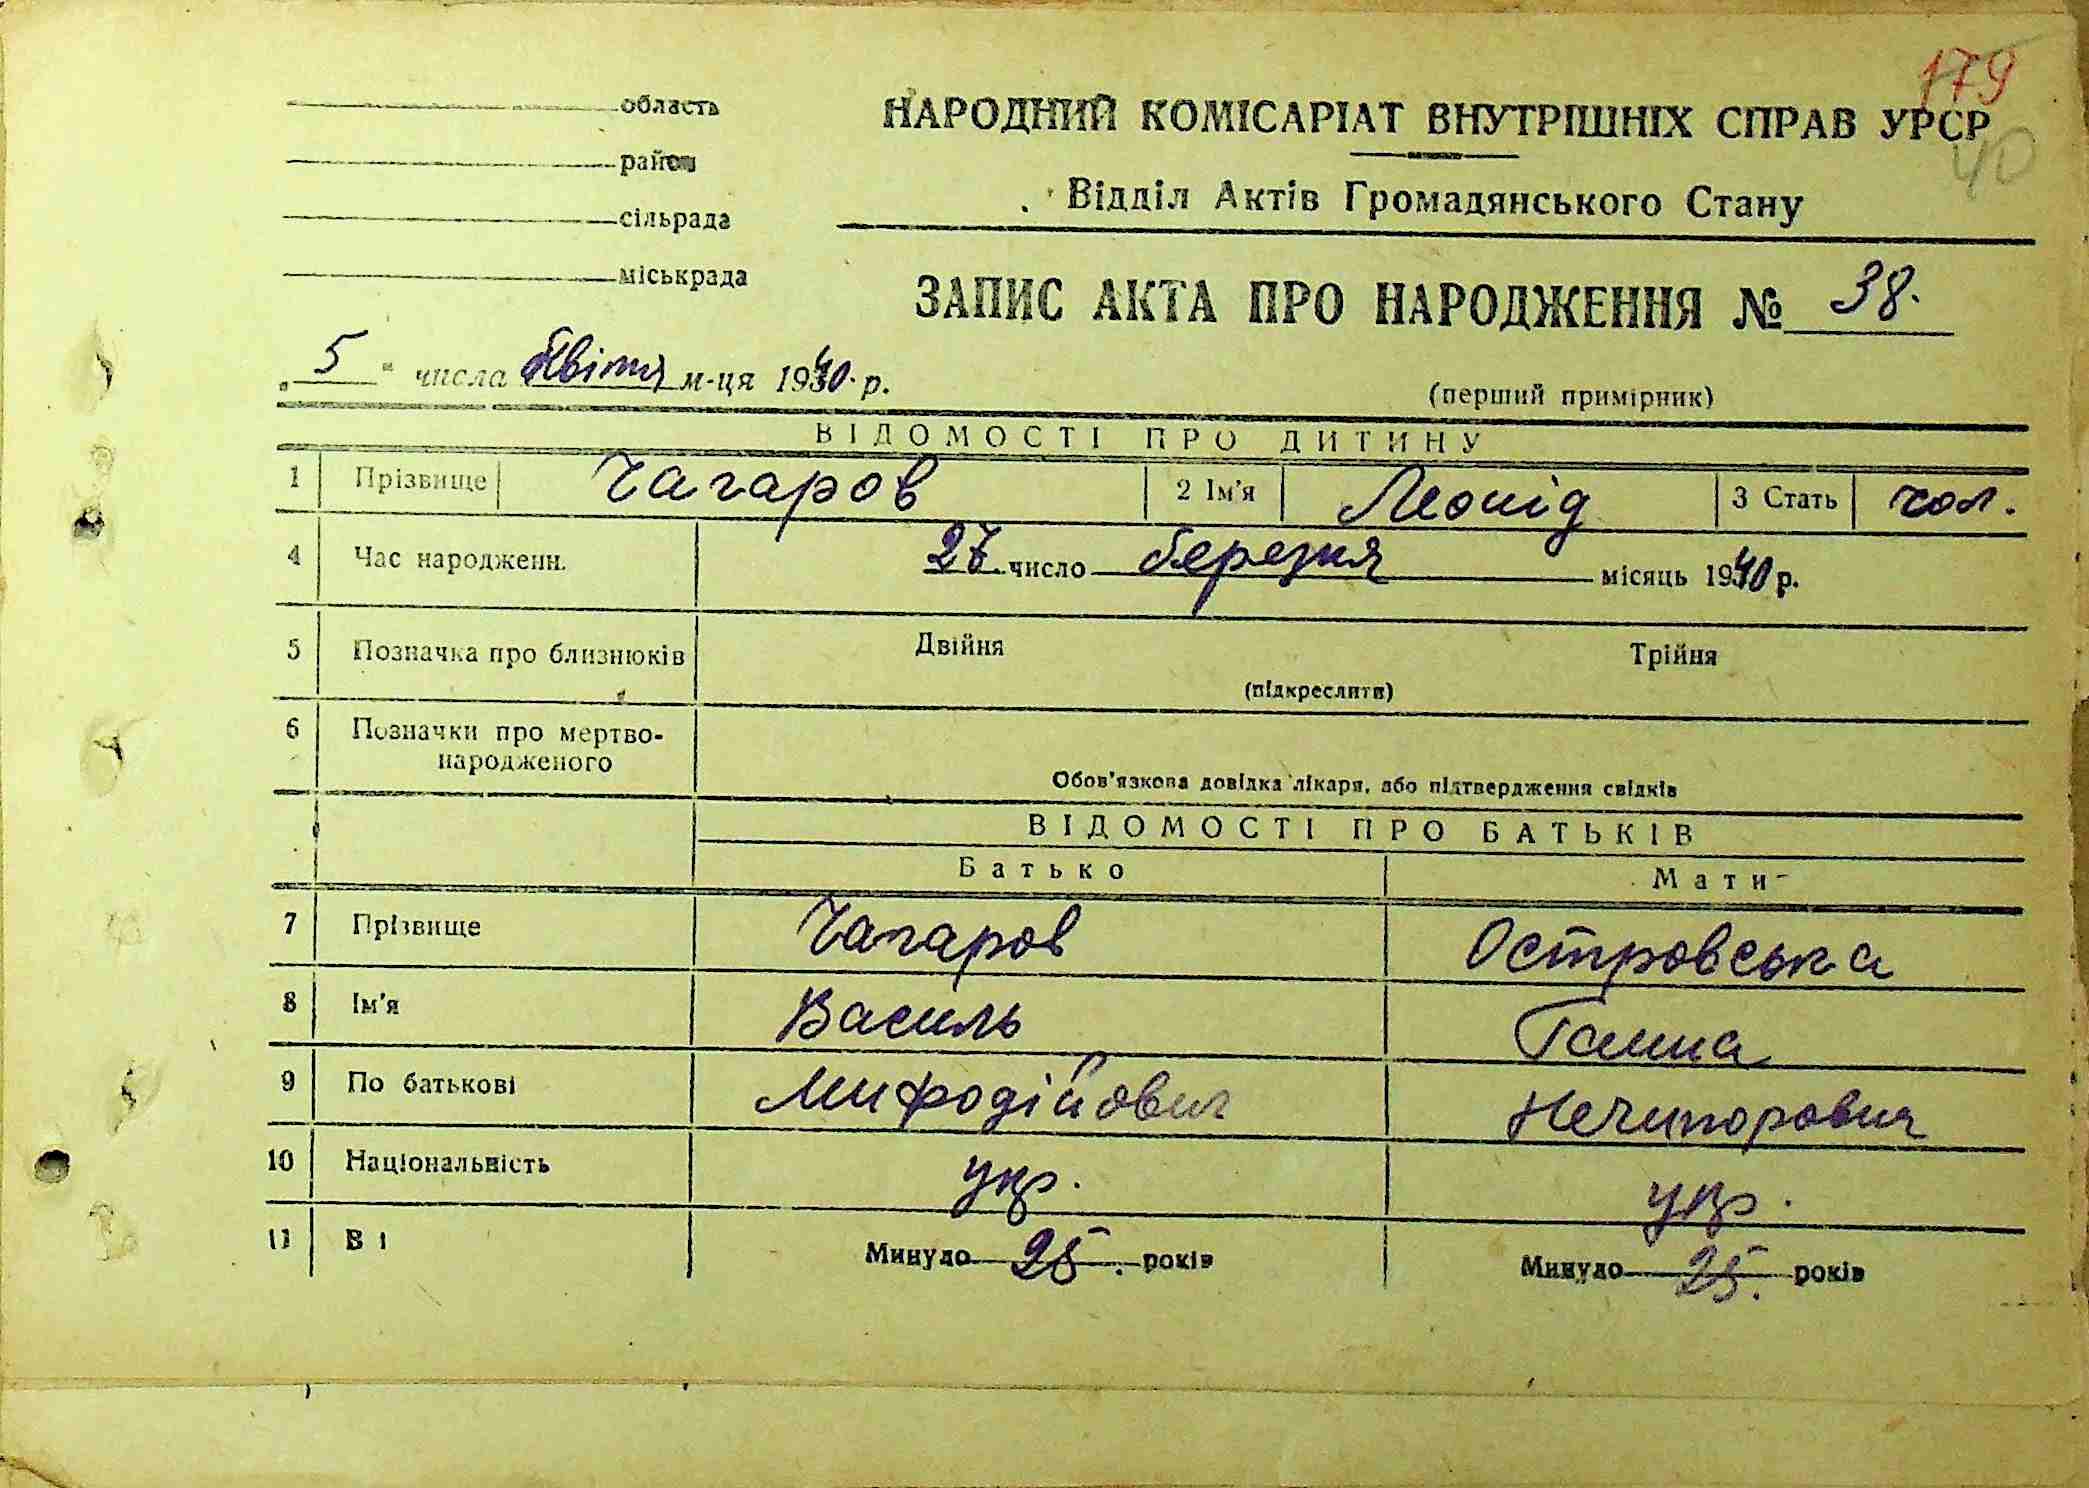 179
40
область
район
сільрада
міськрада
НАРОДНИЙ КОМІСАРІАТ ВНУТРІШНІХ СПРАВ УРСР
Відділ Актів Громадянського Стану
ЗАПИС АКТА ПРО НАРОДЖЕННЯ № 38.
„5" числа квітня м-ця 1940. р.
(перший примірник)
ВІДОМОСТІ ПРО ДИТИНУ
1 Прізвище Чагаров 2 Ім'я Леонід 3 Стать чол.
4 Час народженн. 27. число березня місяць 1940 р.
5 Позначка про близнюків Двійня Трійня
(підкреслити)
6 Позначки про мертво-
народженого
Обов'язкова довідка лікаря, або підтвердження свідків
ВІДОМОСТІ ПРО БАТЬКІВ
Батько Мати
7 Прізвище Чагаров Островська
8 Ім'я Василь Галина
9 По батькові Мифодійович Нечипорович
10 Національність укр. укр.
11 В і Минуло 25. років Минуло 25. років